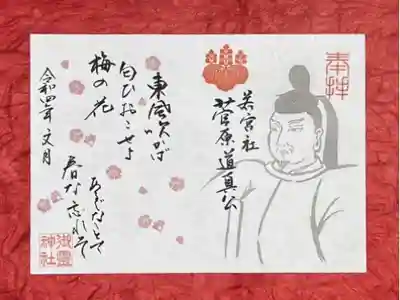 奉拝
若宮社
菅原道真公
東風吹かば
匂ひおこせよ
梅の花
あるじなしとて
春な忘れそ
令和四年 文月
御霊神社